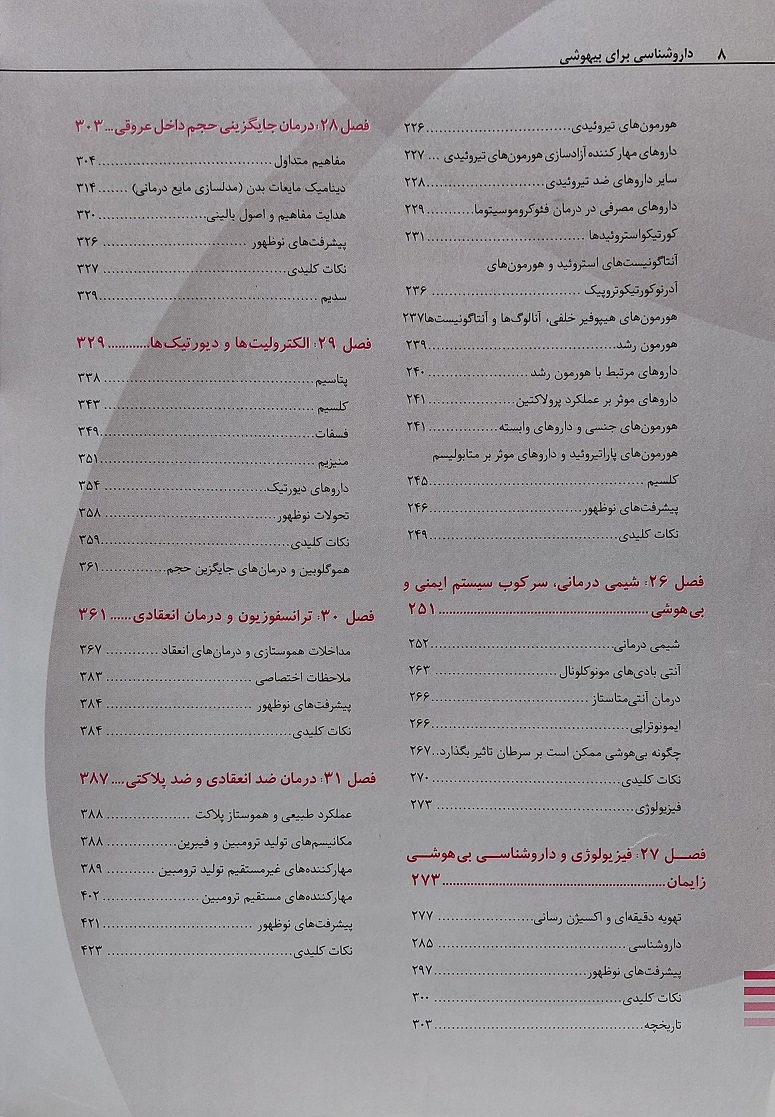 ۸ داروشناسی برای بیهوشی
هورمون‌های تیروئیدی ........ ۲۲۶
داروهای مهار کننده آزادسازی هورمون‌های تیروئیدی ... ۲۲۷
سایر داروهای ضد تیروئیدی ........ ۲۲۸
داروهای مصرفی در درمان فئوکروموسیتوما ........ ۲۲۹
کورتیکواستروئیدها ........ ۲۳۱
آنتاگونیست‌های استروئید و هورمون‌های
آدرنوکورتیکوتروپیک ........ ۲۳۶
هورمون‌های هیپوفیز خلفی، آنالوگ‌ها و آنتاگونیست‌ها۲۳۷
هورمون رشد ........ ۲۳۹
داروهای مرتبط با هورمون رشد ........ ۲۴۰
داروهای موثر بر عملکرد پرولاکتین ........ ۲۴۱
هورمون‌های جنسی و داروهای وابسته ........ ۲۴۱
هورمون‌های پاراتیروئید و داروهای موثر بر متابولیسم
کلسیم ........ ۲۴۵
پیشرفت‌های نوظهور ........ ۲۴۶
نکات کلیدی ........ ۲۴۹
فصل ۲۶: شیمی درمانی، سرکوب سیستم ایمنی و
بی‌هوشی ........ ۲۵۱
شیمی درمانی ........ ۲۵۲
آنتی بادی‌های مونوکلونال ........ ۲۶۳
درمان آنتی‌متاستاز ........ ۲۶۶
ایمونوتراپی ........ ۲۶۶
چگونه بی‌هوشی ممکن است بر سرطان تاثیر بگذارد.. ۲۶۷
نکات کلیدی ........ ۲۷۰
فیزیولوژی ........ ۲۷۳
فصـل ۲۷: فیزیولوژی و داروشناسـی بی‌هوشـی
زایمان ........ ۲۷۳
تهویه دقیقه‌ای و اکسیژن رسانی ........ ۲۷۷
داروشناسی ........ ۲۸۵
پیشرفت‌های نوظهور ........ ۲۹۷
نکات کلیدی ........ ۳۰۰
تاریخچه ........ ۳۰۳
فصل ۲۸: درمان جایگزینی حجم داخل عروقی ... ۳۰۳
مفاهیم متداول ........ ۳۰۴
دینامیک مایعات بدن (مدلسازی مایع درمانی) ....... ۳۱۴
هدایت مفاهیم و اصول بالینی ........ ۳۲۰
پیشرفت‌های نوظهور ........ ۳۲۶
نکات کلیدی ........ ۳۲۷
سدیم ........ ۳۲۹
فصل ۲۹: الکترولیت‌ها و دیورتیک‌ها ........ ۳۲۹
پتاسیم ........ ۳۳۸
کلسیم ........ ۳۴۳
فسفات ........ ۳۴۹
منیزیم ........ ۳۵۱
داروهای دیورتیک ........ ۳۵۴
تحولات نوظهور ........ ۳۵۸
نکات کلیدی ........ ۳۵۹
هموگلوبین و درمان‌های جایگزین حجم ........ ۳۶۱
فصل ۳۰: ترانسفوزیون و درمان انعقادی ...... ۳۶۱
مداخلات هموستازی و درمان‌های انعقاد ........ ۳۶۷
ملاحظات اختصاصی ........ ۳۸۳
پیشرفت‌های نوظهور ........ ۳۸۴
نکات کلیدی ........ ۳۸۴
فصل ۳۱: درمان ضد انعقادی و ضد پلاکتی .... ۳۸۷
عملکرد طبیعی و هموستاز پلاکت ........ ۳۸۸
مکانیسم‌های تولید ترومبین و فیبرین ........ ۳۸۸
مهارکننده‌های غیرمستقیم تولید ترومبین ........ ۳۸۹
مهارکننده‌های مستقیم ترومبین ........ ۴۰۲
پیشرفت‌های نوظهور ........ ۴۲۱
نکات کلیدی ........ ۴۲۳